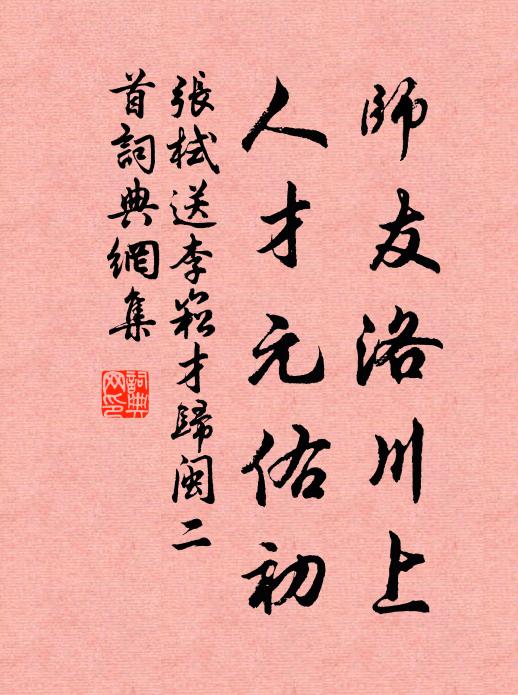 師友洛川上
人才元佑初
張栻送李崧才歸閩二
首詞典網集
詞典
网印